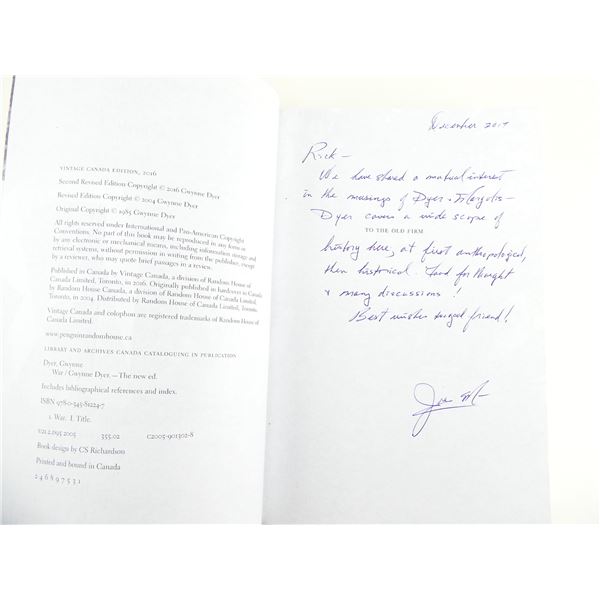 VINTAGE CANADA EDITION, 2016
Second Revised Edition Copyright © 2016 Gwynne Dyer
Revised Edition Copyright © 2004 Gwynne Dyer
Original Copyright © 1985 Gwynne Dyer
All rights reserved under International and Pan-American Copyright
Conventions. No part of this book may be reproduced in any form or
by any electronic or mechanical means, including information storage and
retrieval systems, without permission in writing from the publisher, except
by a reviewer, who may quote brief passages in a review.
Published in Canada by Vintage Canada, a division of Random House of
Canada Limited, Toronto, in 2016. Originally published in hardcover in Canada by
Random House Canada, a division of Random House of Canada Limited,
Toronto, in 2004. Distributed by Random House of Canada Limited, Toronto.
Vintage Canada and colophon are registered trademarks of Random House of
Canada Limited.
www.penguinrandomhouse.ca
LIBRARY AND ARCHIVES CANADA CATALOGUING IN PUBLICATION
Dyer, Gwynne
War / Gwynne Dyer. —The new ed.
Includes bibliographical references and index.
ISBN 978-0-345-81224-7
1. War. I. Title.
U21.2.D95 2005 355.02 C2005-901302-8
Book design by CS Richardson
Printed and bound in Canada
2 4 6 8 9 7 5 3 1
December
Rick –
We have shared a mutual interest
in the musings of Dyer
Dyer covers a wide scope of
TO THE OLD FIRM
history here, at first anthropological,
then historical. Food for thought
& many discussions!
Best wishes friend!